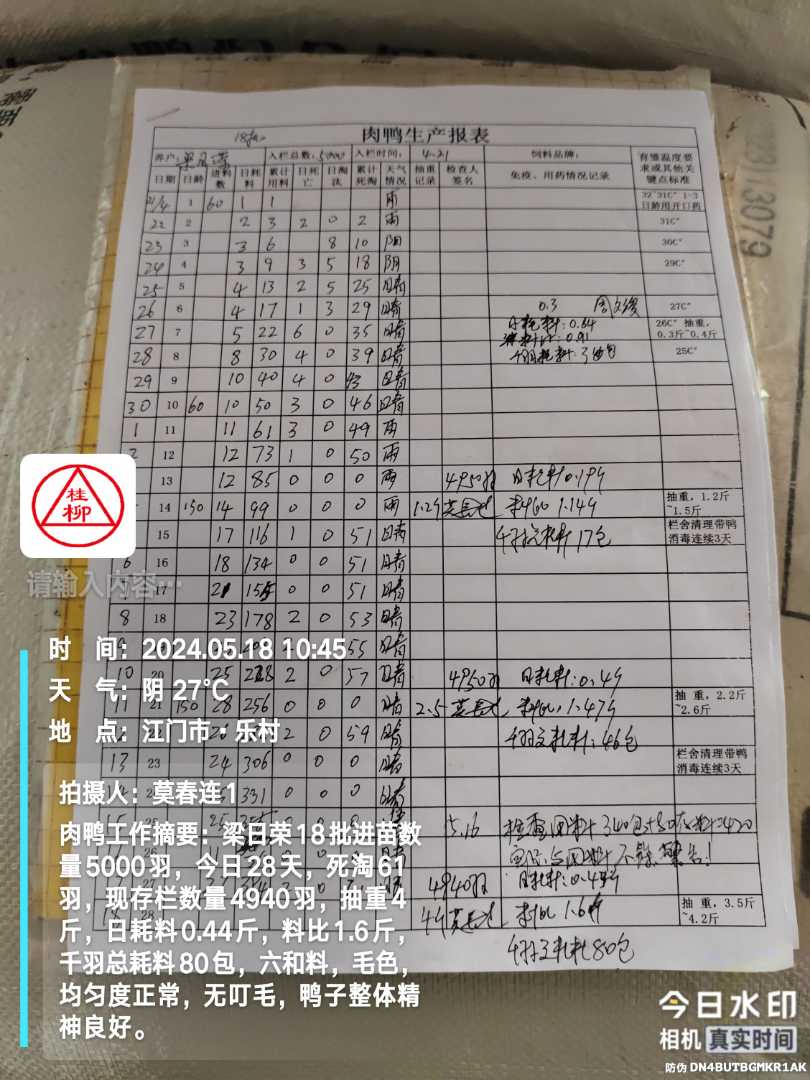 18批
肉鸭生产报表
养户: 入栏总数: 5000 入栏时间: 4-21 饲料品牌: 育雏温度要求或其他关键点标准
日期 日龄 进料数 日耗料 累计用料 日死亡 日淘汰 累计死淘 天气情况 抽重记录 检查人签名 免疫、用药情况记录
21/4 1 60 1 1 雨 32~31C° 1-3日龄用开口药
22 2 2 3 2 0 2 雨 31C°
23 3 3 6 8 10 阳 30C°
24 4 3 9 3 5 18 阴 29C°
25 5 4 13 2 5 25 晴
26 6 4 17 1 3 29 晴 0.3 27C°
27 7 5 22 6 0 35 晴 日耗料:0.64 26C° 抽重,0.3斤~0.4斤
料比:0.91
28 8 8 30 4 0 39 晴 25C°
29 9 10 40 4 0 43 晴
30 10 60 10 50 3 0 46 晴
1 11 11 61 3 0 49 雨
2 12 12 73 1 0 50 雨
13 12 85 0 0 0 雨 4950羽 日耗料0.19斤
14 150 14 99 0 0 0 雨 1.2斤 料比1.14斤 抽重,1.2斤~1.5斤
15 17 116 1 0 51 晴 千羽总耗料17包 栏舍清理带鸭消毒连续3天
6 16 18 134 0 0 51 晴
17 21 155 0 0 51 晴
8 18 23 178 2 0 53 晴
55 晴
10 20 25 228 2 0 57 晴 4950羽 日耗料:0.4斤
11 21 150 28 256 0 0 0 晴 2.5 料比:1.47斤 抽重,2.2斤~2.6斤
2 0 59 晴 千羽总耗料:46包
13 23 24 306 0 0 0 晴 栏舍清理带鸭消毒连续3天
331 0 0 0 晴
15.16 检查用料340包
4940羽 日耗料:0.44斤
28 4斤 料比1.6斤 抽重,3.5斤~4.2斤
千羽总耗料80包
桂柳
请输入内容…
时 间:2024.05.18 10:45
天 气:阴 27℃
地 点:江门市·乐村
拍摄人:莫春连1
肉鸭工作摘要:梁日荣18批进苗数
量5000羽,今日28天,死淘61
羽,现存栏数量4940羽,抽重4
斤,日耗料0.44斤,料比1.6斤,
千羽总耗料80包,六和料,毛色,
均匀度正常,无叮毛,鸭子整体精
神良好。
3079
今日水印
相机 真实时间
防伪 DN4BUTBGMKR1AK